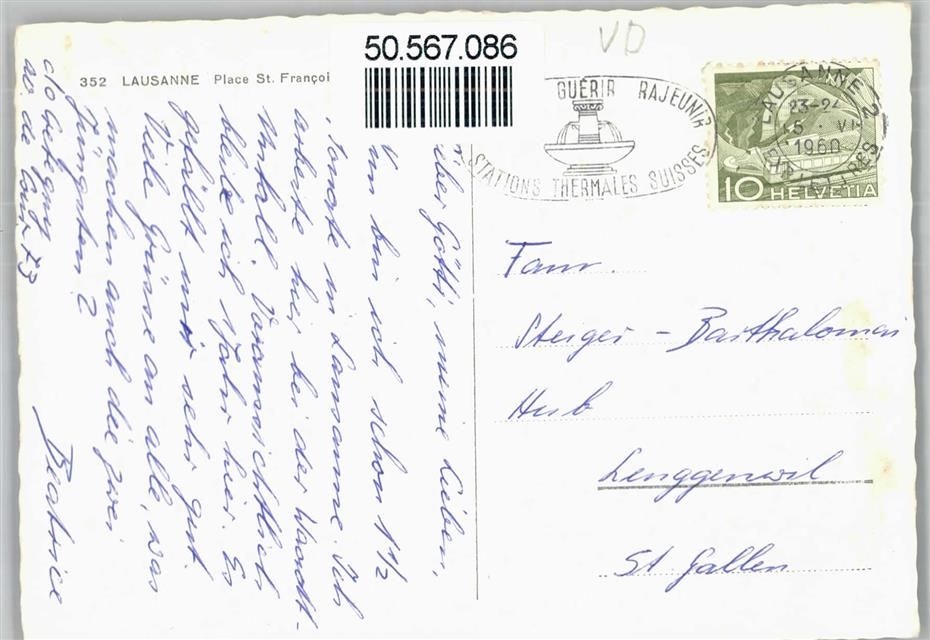 50.567.086
VD
352 LAUSANNE Place St. Françoi
GUÉRIR RAJEUNIR
STATIONS THERMALES SUISSES
LAUSANNE 2
23-24
5. VI
1960
10 HELVETIA
über Götti, meine Lieben,
Nun bin ich schon 1 1/2
Monate in Lausanne. Ich
arbeite hier bei der Waadt-
Unfall. Voraussichtlich
bleibe ich 1 Jahr hier. Es
gefällt mir sehr gut.
Viele Grüsse an alle, was
machen auch die zwei
Jüngsten?
Beatrice
c/o
av. de
Fam.
Steiger - Barthalomei
Hub
Lenggenwil
St. Gallen